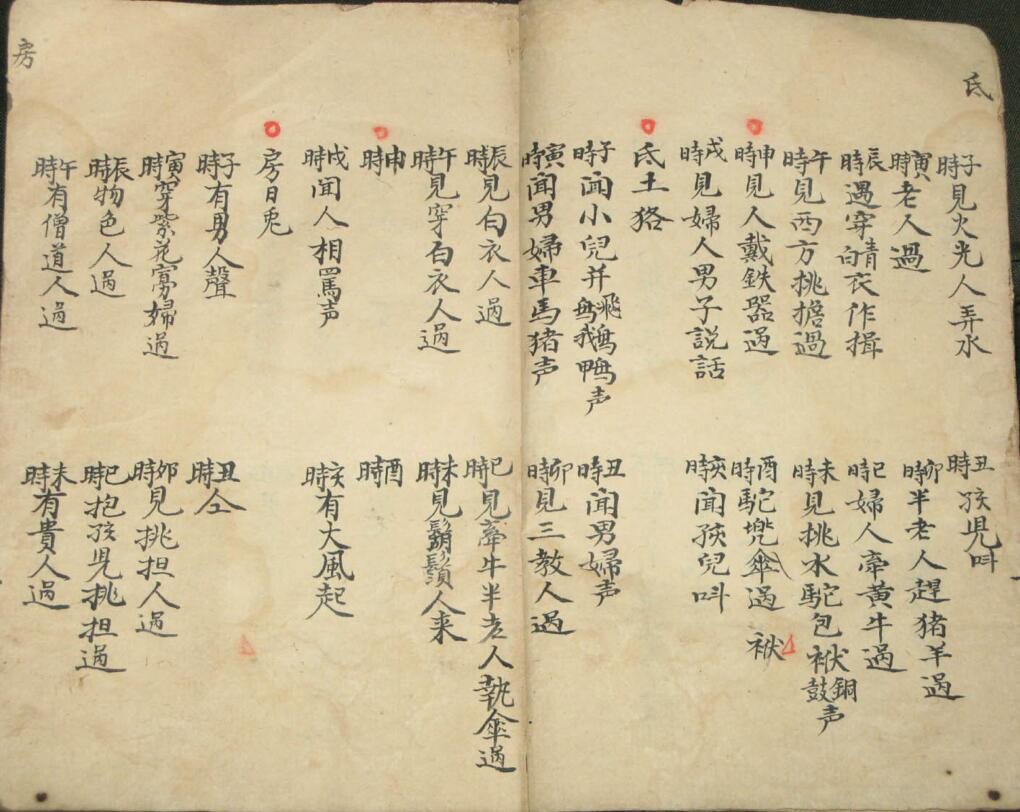 氐
子時見火光人弄水
丑時孩児叫
寅時老人過
卯時半老人趕猪羊過
辰時遇穿青白衣作揖
巳時婦人牽黄牛過
午時見西方挑擔過
未時見挑水駝包袱銅鼓声
申時見人戴鉄器過
酉時駝兜傘過
袱
戌時見婦人男子説話
亥時聞孩兒叫
氐土狢
子時聞小兒并飛鵝鴨声
丑時聞男婦声
寅時聞男婦車馬猪声
卯時見三教人過
辰時見白衣人過
巳時見牽牛半老人執傘過
午時見穿白衣人過
未時見鬍鬚人来
申時
酉時
戌時聞人相罵声
亥時有大風起
房日兎
子時有男人聲
丑時仝
寅時穿紫花寡婦過
卯時見挑担人過
辰時物色人過
巳時抱孩児挑担過
午時有僧道人過
未時有貴人過
房